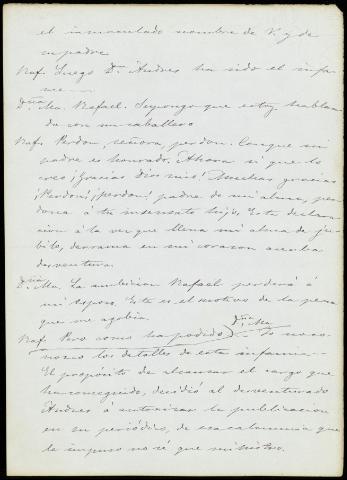 el inmaculado nombre de V. y de
mi padre
Raf. Luego D. Andres ha sido el infa-
me ....
D.ña Ma. Rafael. Supongo que estoy hablan-
do con un caballero
Raf. Perdon, señora, perdon. Conque mi
padre es honrado. Ahora si que lo
creo ¡Gracias Dios mio! Muchas gracias
¡Perdon! ¡perdon! padre de mi alma, per-
dona á tu insensato hijo. Esta declara-
cion á la vez que llena mi alma de jú-
bilo, derrama en mi corazon acerba
desventura.
D.ña Ma. La ambicion Rafael perderá á
mi esposo. Este es el motivo de la pena
que me agobia.
Raf. Pero como ha podido
D.ña Ma. Yo no co-
nozco los detalles de esta infamia...
El propósito de alcanzar el cargo que
ha conseguido, decidió al desventurado
Andres á autorizar la publicacion
en su periódico, de esa calumnia que
le impuso no sé que ministro.